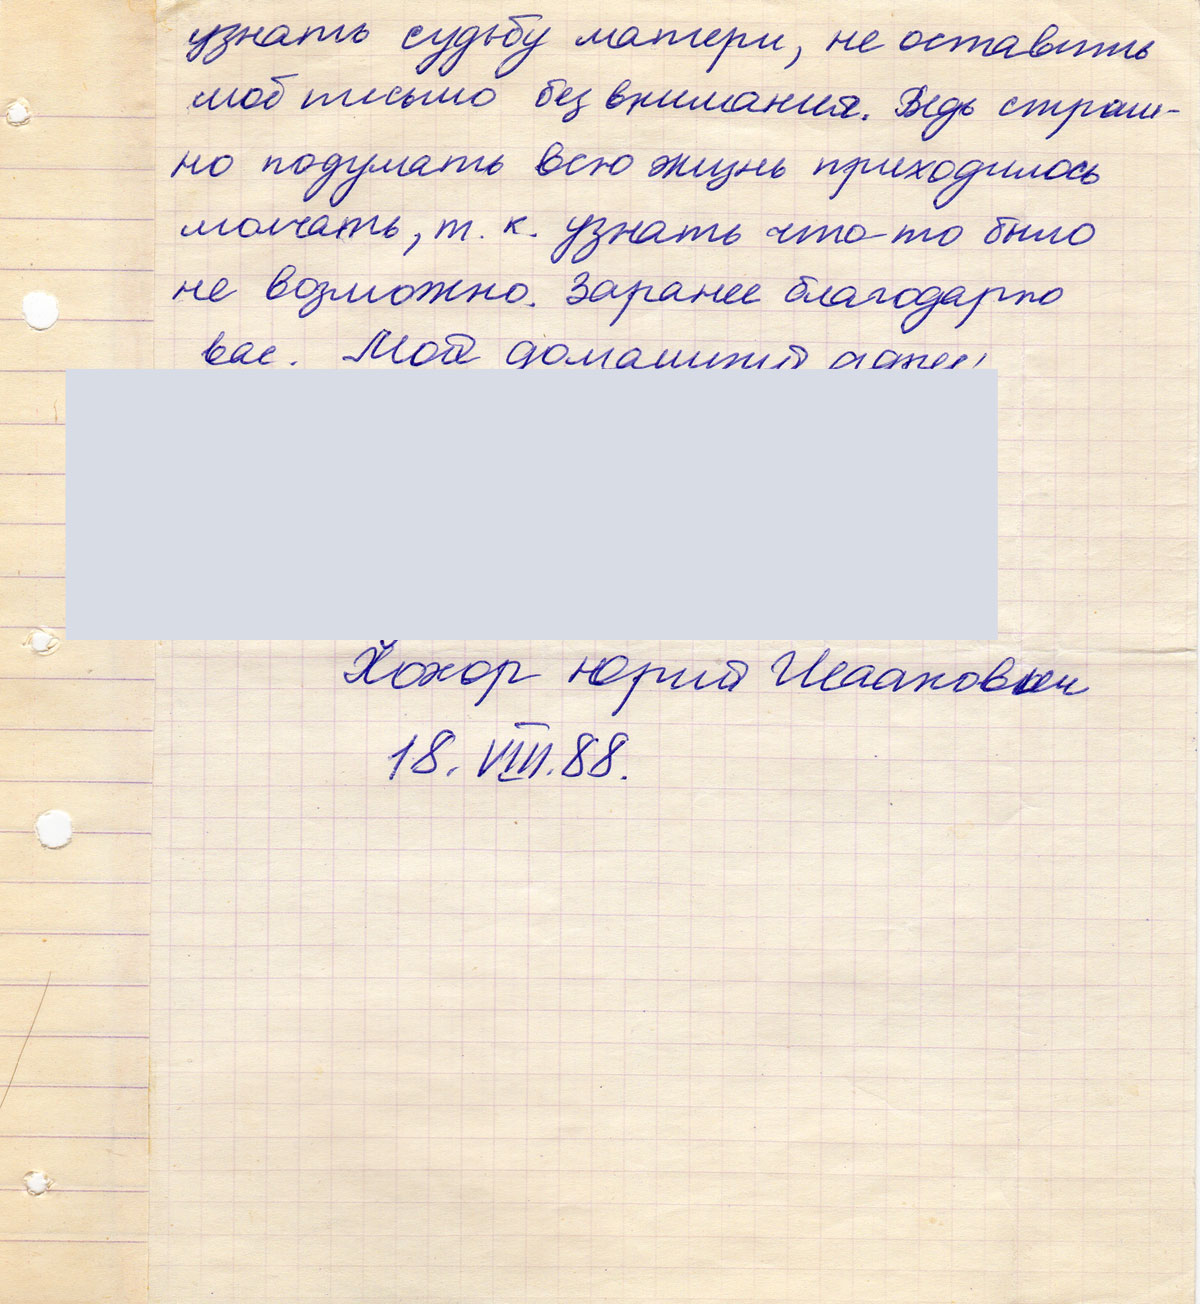 узнать судьбу матери, не оставить
моё письмо без внимания. Ведь страш-
но подумать всю жизнь приходилось
молчать, т. к. узнать что-то было
не возможно. Заранее благодарно
вас. Мой домашний адрес:
Юрий Исаакович
18. VIII. 88.